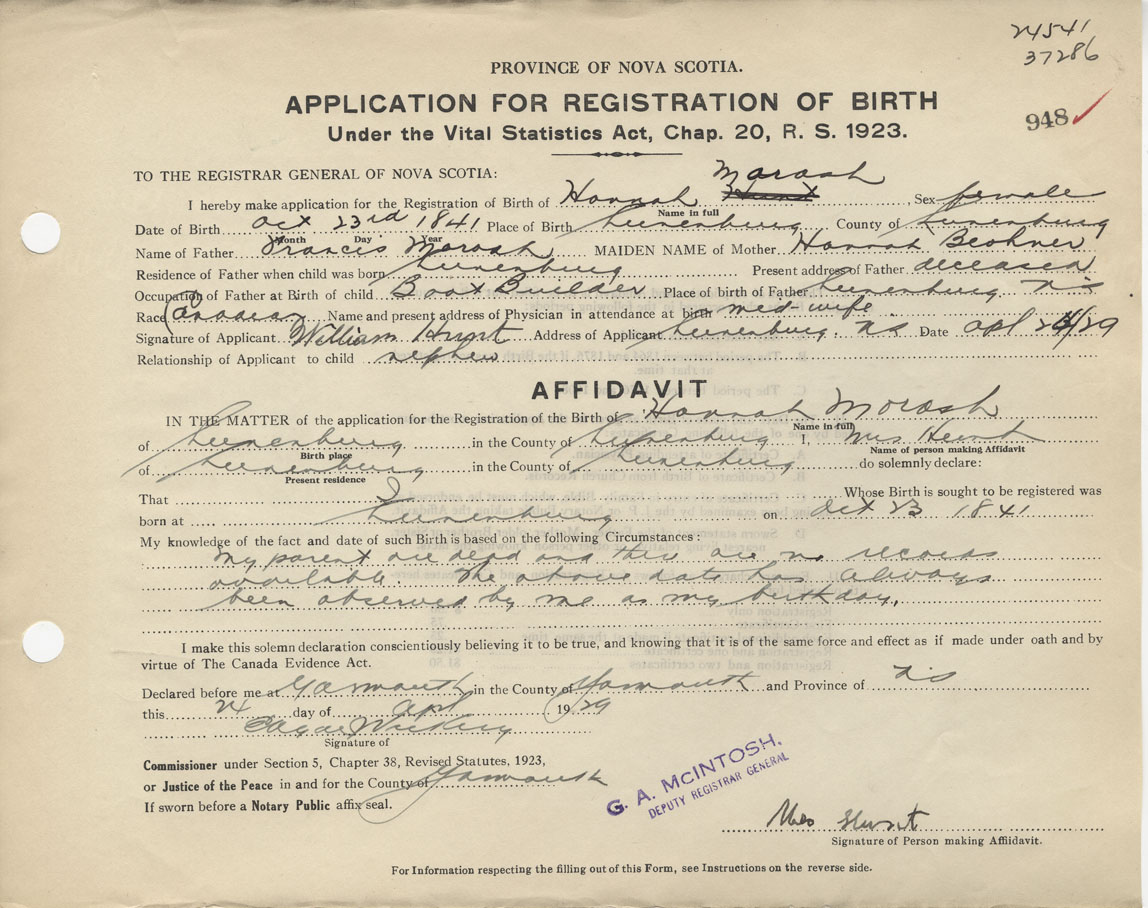 24541
37286
PROVINCE OF NOVA SCOTIA.
APPLICATION FOR REGISTRATION OF BIRTH
948
Under the Vital Statistics Act, Chap. 20, R. S. 1923.
TO THE REGISTRAR GENERAL OF NOVA SCOTIA:
Morash
I hereby make application for the Registration of Birth of Hannah Hunt Sex female
Name in full
Date of Birth Oct 23rd 1841 Place of Birth Lunenburg County of Lunenburg
Month Day Year
Name of Father Francis Morash MAIDEN NAME of Mother Hannah Beohner
Residence of Father when child was born Lunenburg Present address of Father deceased
Occupation of Father at Birth of child Boat Builder Place of birth of Father Lunenburg NS
Race Canadian Name and present address of Physician in attendance at birth med-wife
Signature of Applicant William Hunt Address of Applicant Lunenburg. NS Date Apl 24/29
Relationship of Applicant to child nephew
AFFIDAVIT
IN THE MATTER of the application for the Registration of the Birth of Hannah Morash
Name in full
of Lunenburg in the County of Lunenburg I, Mrs Hunt
Birth place Name of person making Affidavit
of Lunenburg in the County of Lunenburg do solemnly declare:
Present residence
That I Whose Birth is sought to be registered was
born at Lunenburg on Oct 23 1841
My knowledge of the fact and date of such Birth is based on the following Circumstances:
My parent are dead and there are no records
available. The above date has always
been observed by me as my birthday.
I make this solemn declaration conscientiously believing it to be true, and knowing that it is of the same force and effect as if made under oath and by
virtue of The Canada Evidence Act.
Declared before me at Yarmouth in the County of Yarmouth and Province of NS
this 24 day of Apl 19/29
Signature of
Commissioner under Section 5, Chapter 38, Revised Statutes, 1923,
or Justice of the Peace in and for the County of Yarmouth
If sworn before a Notary Public affix seal.
G. A. McINTOSH,
DEPUTY REGISTRAR GENERAL
Mrs Hunt
Signature of Person making Affidavit.
For Information respecting the filling out of this Form, see Instructions on the reverse side.